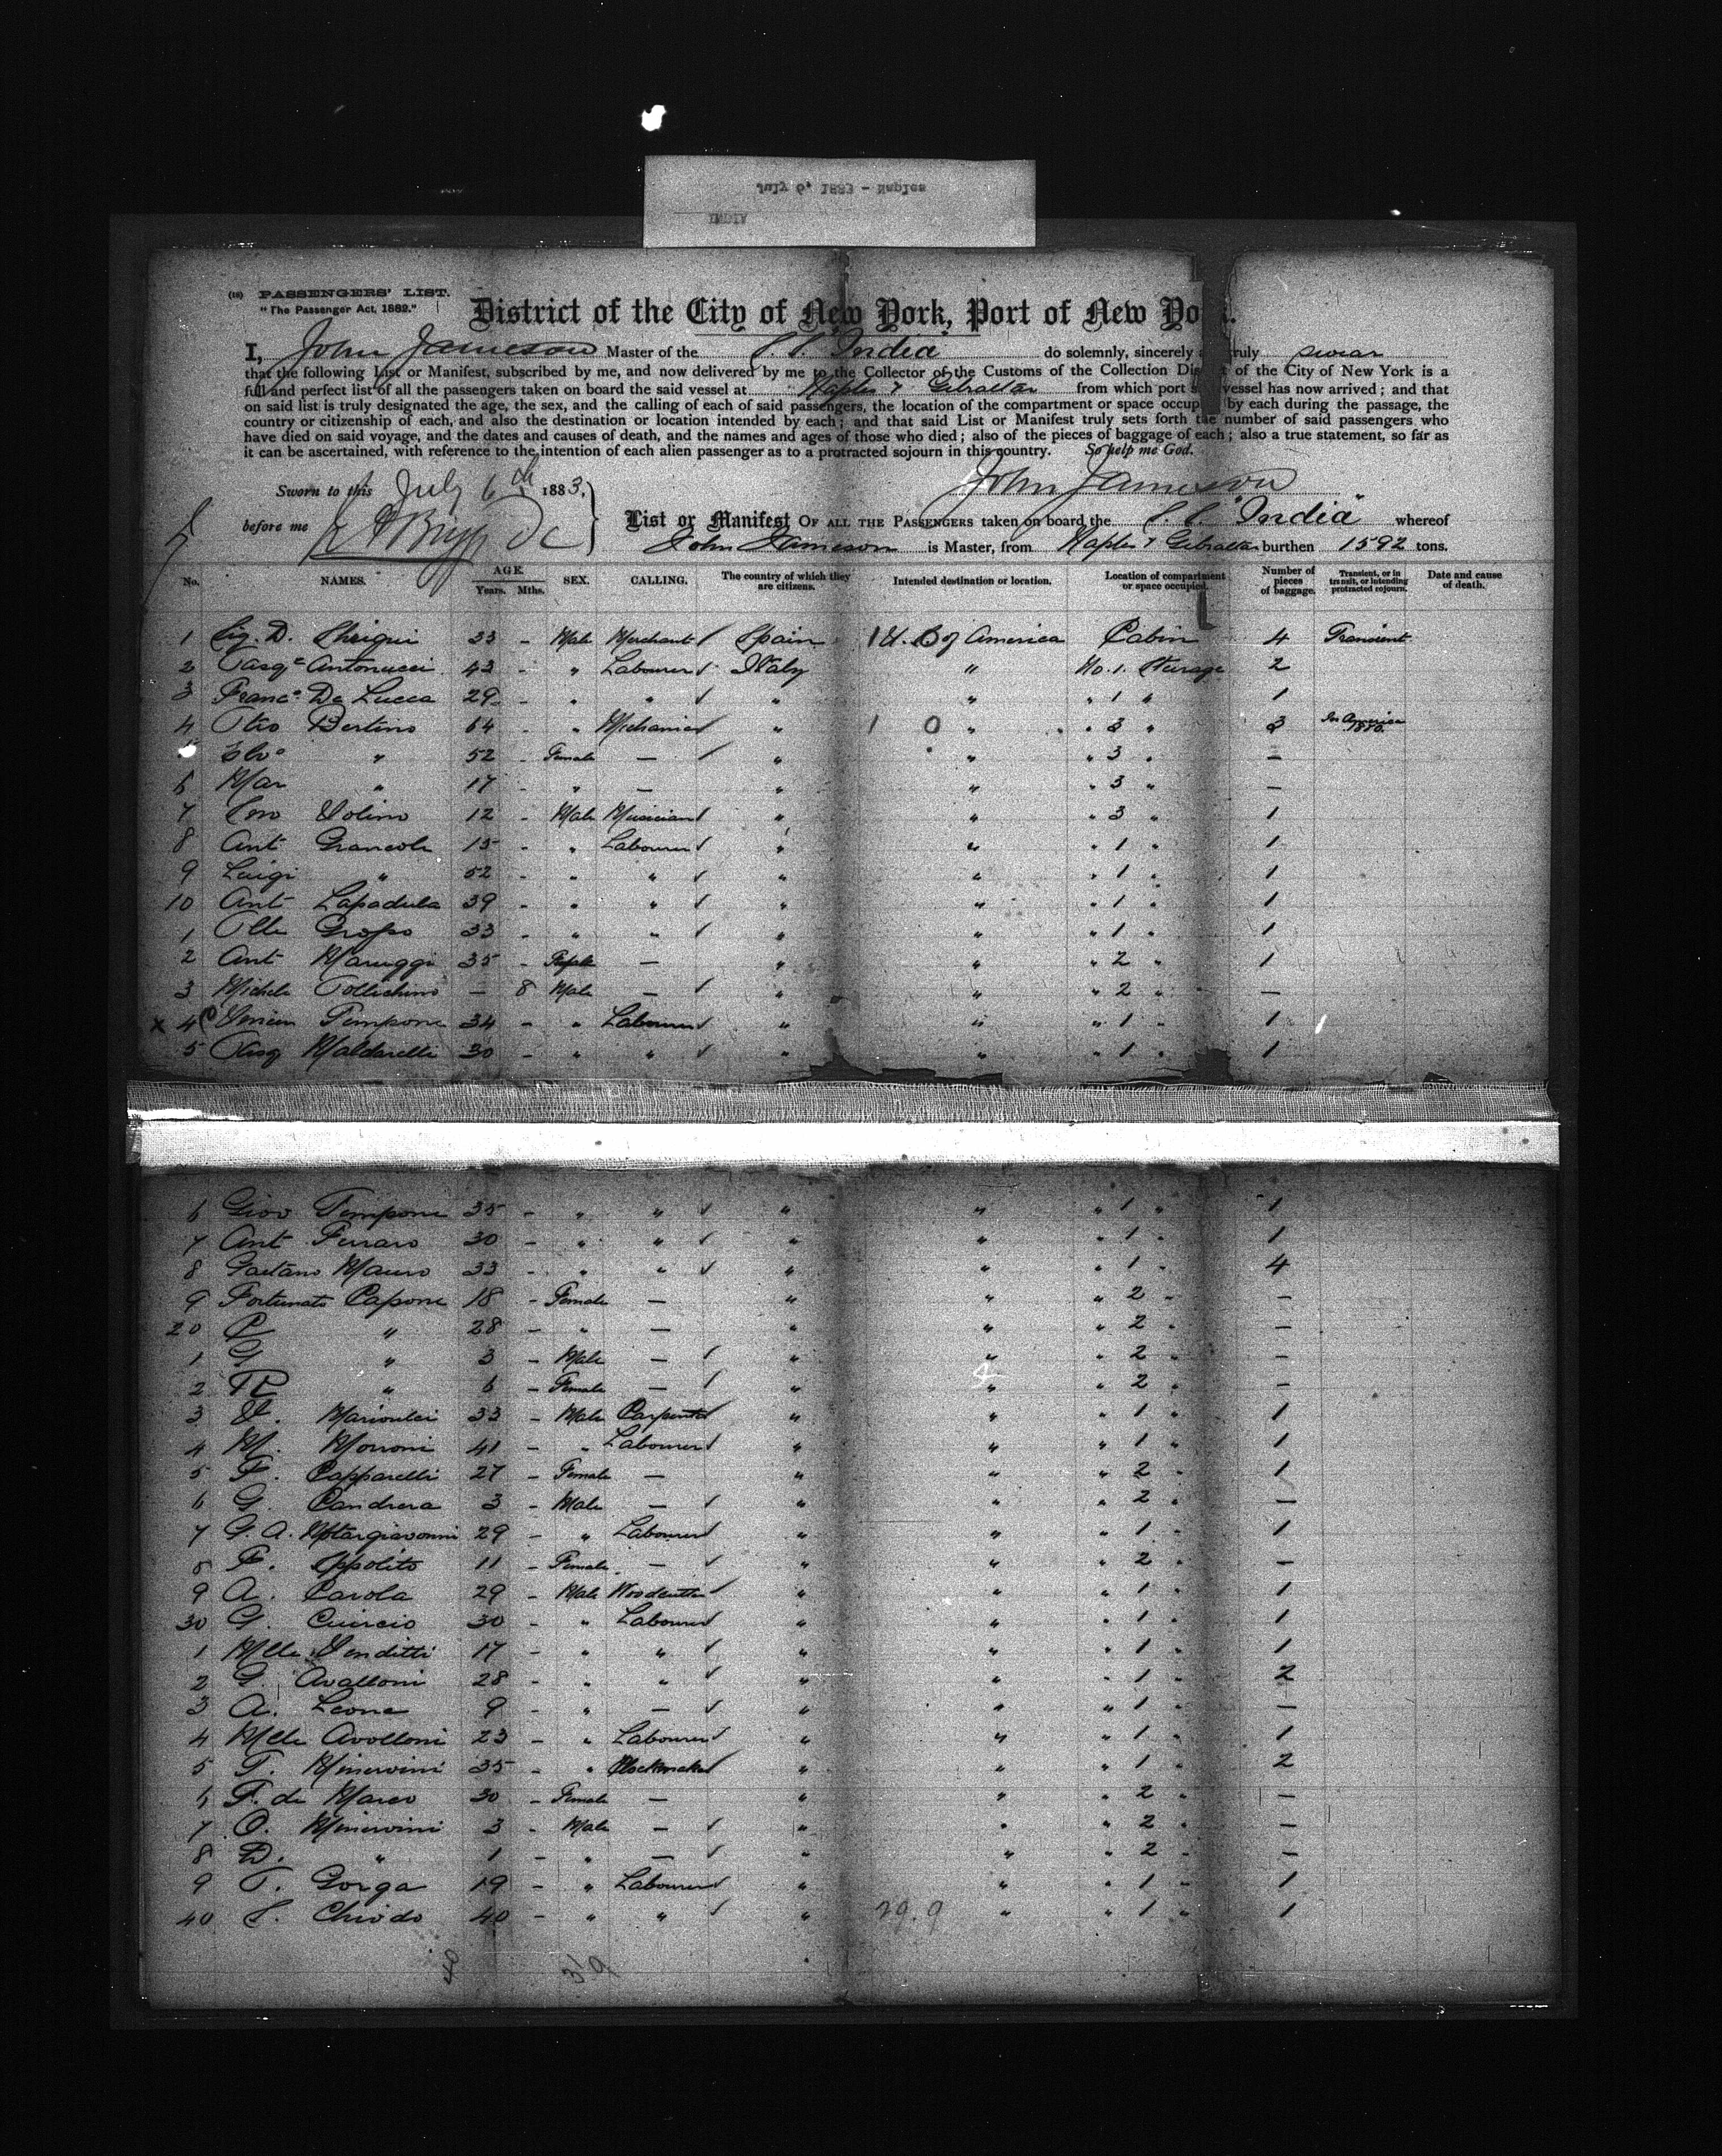 July 6, 1883 - Naples
INDIA
(18) PASSENGERS' LIST.
"The Passenger Act, 1882."
District of the City of New York, Port of New Yo
I, John Jameson Master of the S.S. India do solemnly, sincerely truly swear
that the following List or Manifest, subscribed by me, and now delivered by me to the Collector of the Customs of the Collection Dis of the City of New York is a
full and perfect list of all the passengers taken on board the said vessel at Naples & Gibraltar from which port vessel has now arrived; and that
on said list is truly designated the age, the sex, and the calling of each of said passengers, the location of the compartment or space occup by each during the passage, the
country or citizenship of each, and also the destination or location intended by each; and that said List or Manifest truly sets forth the number of said passengers who
have died on said voyage, and the dates and causes of death, and the names and ages of those who died; also of the pieces of baggage of each; also a true statement, so far as
it can be ascertained, with reference to the intention of each alien passenger as to a protracted sojourn in this country. So help me God.
Sworn to this July 6th 1883, John Jameson
before me
List or Manifest OF ALL THE PASSENGERS taken on board the S.S. "India" whereof
John Jameson is Master, from Naples & Gibraltar burthen 1592 tons.
No. NAMES. AGE. Years. Mths. SEX. CALLING. The country of which they are citizens. Intended destination or location. Location of compartment or space occupied. Number of pieces of baggage. Transient, or in transit, or intending protracted sojourn. Date and cause of death.
1 Sig. D. 33 - Male Merchant Spain U.S. of America Cabin 4 Transient
2 Pasqe Antonucci 43 - " Labourer Italy " No. 1. Sturage 2
3 Franco De Lucca 29 - " " " " " 1 " 1
4 Bertino 64 - " Mechanic " 1 0 " " 3 " 3 In America 1880.
" 52 - Female — " " " 3 " —
6 Mar " 17 - " — " " " 3 " —
7 Volino 12 - Male Musician " " " 3 " 1
8 Ant Grancola 15 - " Labourer " " " 1 " 1
9 Luigi " 52 - " " " " " 1 " 1
10 Ant Lapadula 39 - " " " " " 1 " 1
1 Grosso 33 - " " " " " 1 " 1
2 Ant Maruggi 35 - Female — " " " 2 " 1
3 Michele Pollichino — 8 Male — " " " 2 " —
x 4 Timpone 34 - " Labourer " " " 1 " 1
5 Pasq Maldarelli 30 - " " " " " 1 " 1
6 Giov Timpone 35 - " " " " " 1 " 1
7 Ant Ferraro 30 - " " " " " 1 " 1
8 Gaetano Mauro 33 - " " " " " 1 " 4
9 Fortunato Capone 18 - Female — " " " 2 " —
20 C " 28 - " — " " " 2 " —
1 G " 3 - Male — " " " 2 " —
2 " 6 - Female — " " " 2 " —
3 V. 33 - Male Carpenter " " " 1 " 1
4 M. Morroni 41 - " Labourer " " " 1 " 1
5 F. Capparelli 27 - Female — " " " 2 " 1
6 G. Candrera 3 - Male — " " " 2 " —
7 G. A. 29 - " Labourer " " " 1 " 1
8 F. Ippolito 11 - Female — " " " 2 " —
9 A. Carola 29 - Male Woodcutter " " " 1 " 1
30 G. Cuircio 30 - " Labourer " " " 1 " 1
1 Mele Venditti 17 - " " " " " 1 " 1
2 G. Avalloni 28 - " " " " " 1 " 2
3 A. Leone 9 - " — " " " 1 " —
4 Mele Avolloni 23 - " Labourer " " " 1 " 1
5 T. Minervini 35 - " Clockmaker " " " 1 " 2
6 F. de Marco 30 - Female — " " " 2 " —
7 O. Minervini 3 - Male — " " " 2 " —
8 D. " 1 - " — " " " 2 " —
9 T. Gorga 19 - " Labourer " " " 1 " 1
40 S. Chiodo 40 - " " " 29.9 " " 1 " 1
40 39